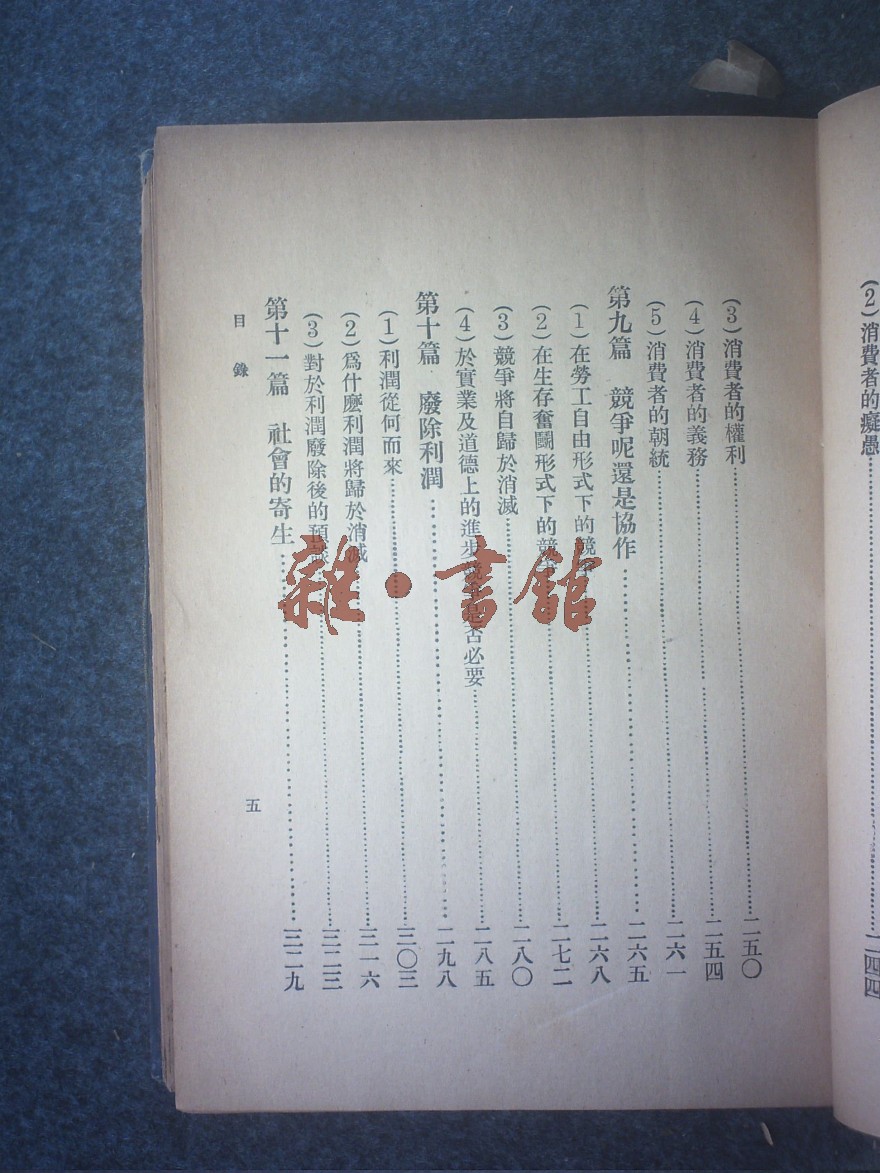 (2)消費者的癡愚……二四四
(3)消費者的權利……二五〇
(4)消費者的義務……二五四
(5)消費者的朝統……二六一
第九篇 競爭呢還是協作……二六五
(1)在勞工自由形式下的競……二六八
(2)在生存奮鬭形式下的競……二七二
(3)競爭將自歸於消滅……二八〇
(4)於實業及道德上的進步 是否必要……二八五
第十篇 廢除利潤……二九八
(1)利潤從何而來……三〇三
(2)爲什麽利潤將歸於消滅……三一六
(3)對於利潤廢除後的預……三二三
第十一篇 社會的寄生……三二九
目錄
五
雜·書館